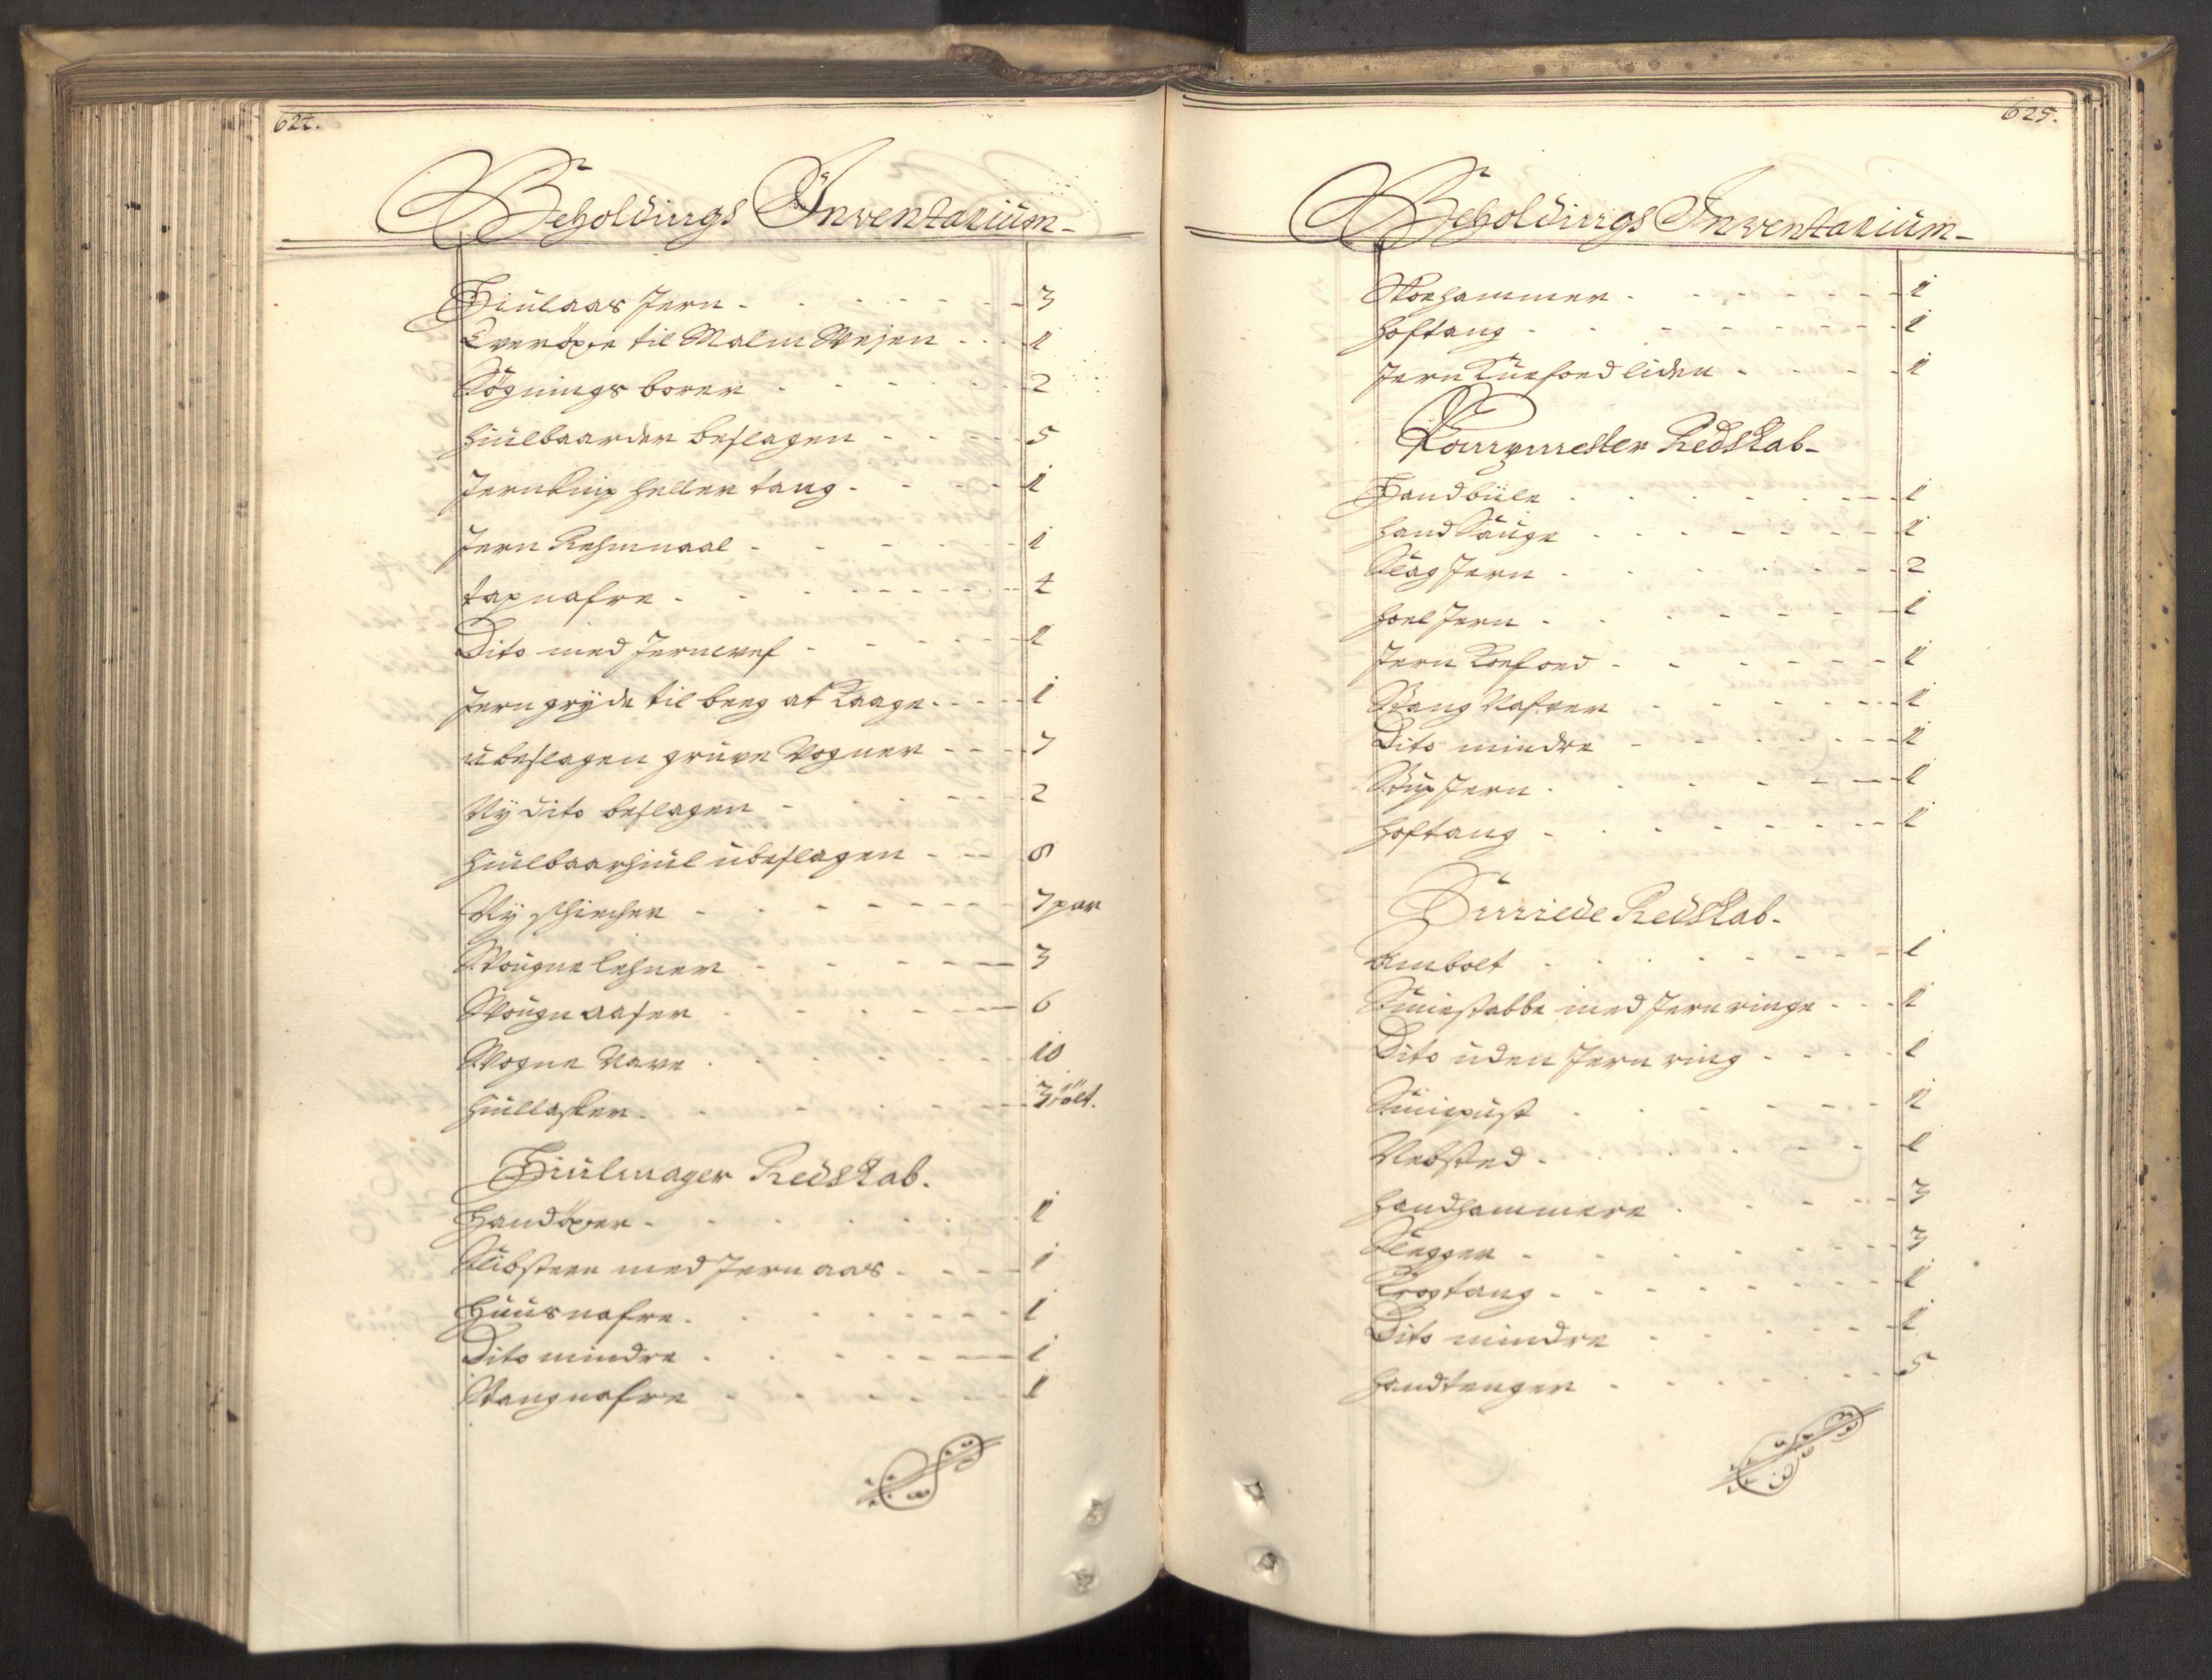 624.
Beholdings Inventarium
Hiulaas Jern - 3
Tveröxe til Malm Vejen - 1
Søgnings borer - 2
hiulbaarder beslagen - 5
Jern knip heller tang - 1
Jern Rehmnaal - 1
tapnafre - 4
Dito med Jern - 1
Jern gryde til beeg at Kaage - 1
ubeslagen gruve Vogner - 7
Ny dito beslagen - 2
hiulbaarhiul ubeslagen - 8
Ny - 7 par
Vougne lehner - 3
Vougn aaser - 6
Vogne Nave - 10
hiullasker - 3 tölt.
Hiulmager Redskab.
Handöxer - 1
Slibsteen med Jern aas - 1
Huusnafre - 1
Dito mindre - 1
Stangnafre - 1
625.
Beholdings Inventarium
Skoehammer - 1
hoftang - 1
Jern Kuefoed liden - 1
Pompmester Redskab
Handbiile - 1
hand Sauge - 1
Slag Jern - 2
hoel Jern - 1
Jern Koefoed - 1
Stang Nafver - 1
Dito mindre - 1
Jern - 1
hoftang - 1
Smiede Redskab
Ambolt - 1
Smiestabbe med Jern ringe - 1
Dito uden Jern ring - 1
Smiepust - 1
- 1
handhammere - 3
Slegger - 3
Krogtang - 1
Dito mindre - 1
handtenger - 5